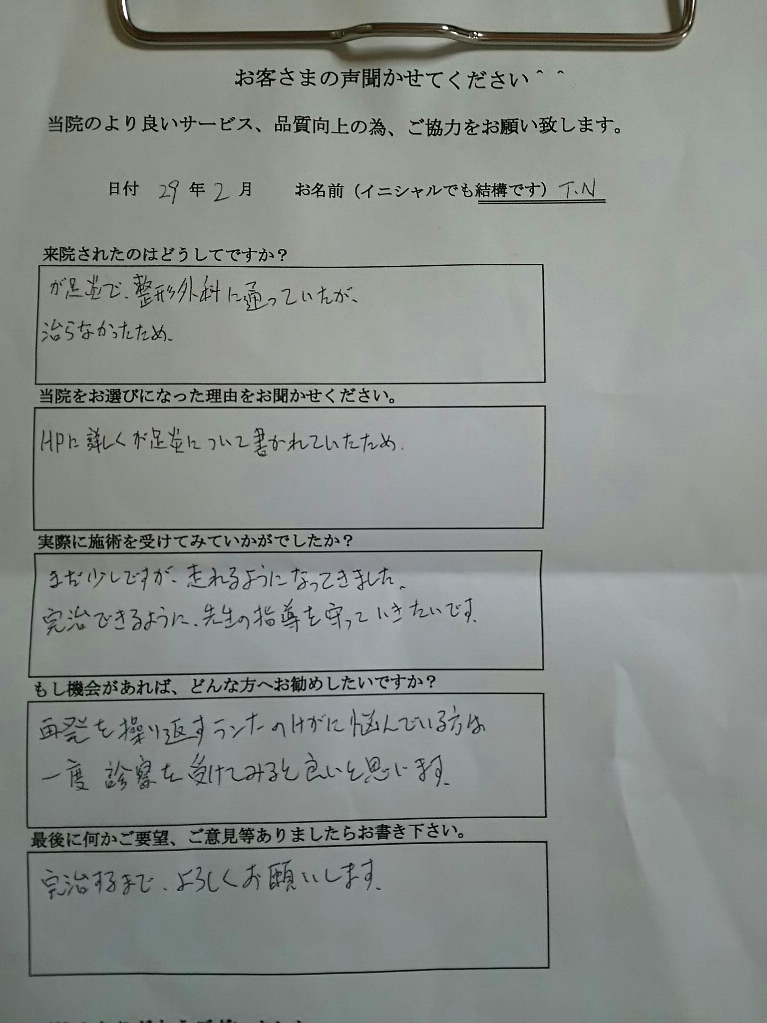 お客さまの声聞かせてください＾＾
当院のより良いサービス、品質向上の為、ご協力をお願い致します。
日付 29 年 2 月 お名前（イニシャルでも結構です） T.N
来院されたのはどうしてですか？
が足炎で、整形外科に通っていたが、
治らなかったため。
当院をお選びになった理由をお聞かせください。
HPに詳しくが足炎について書かれていたため。
実際に施術を受けてみていかがでしたか？
まだ少しですが、走れるようになってきました。
完治できるように、先生の指導を守っていきたいです。
もし機会があれば、どんな方へお勧めしたいですか？
再発を繰り返すランナーのけがに悩んでいる方は
一度 診察を受けてみると良いと思います。
最後に何かご要望、ご意見等ありましたらお書き下さい。
完治するまで、よろしくお願いします。